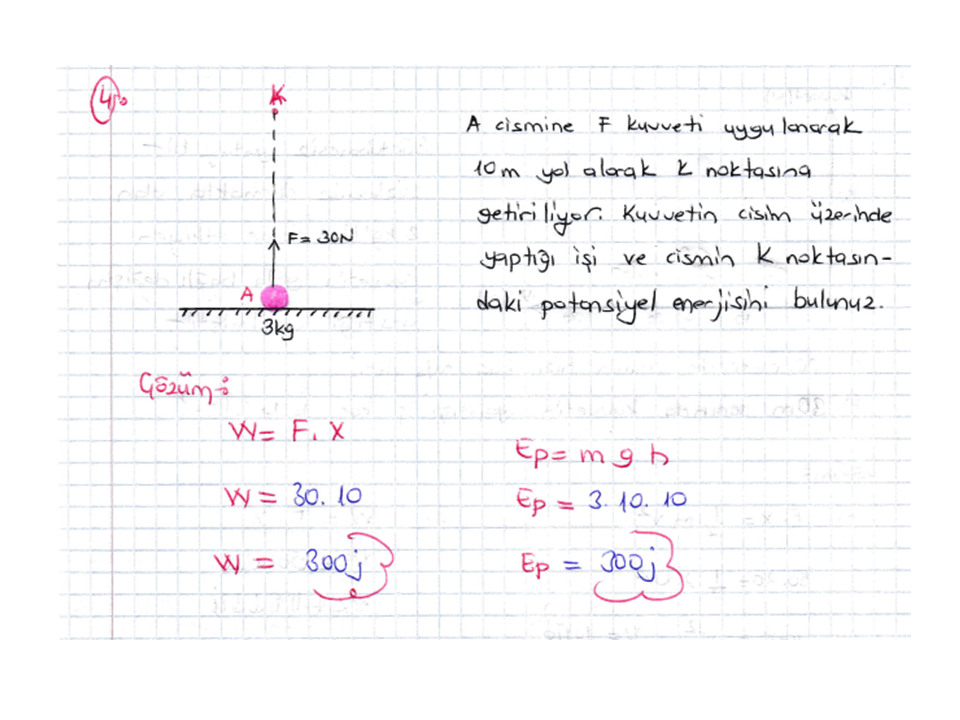 4)
K
A cismine F kuvveti uygulanarak
10m yol alarak K noktasına
getiriliyor. Kuvvetin cisim üzerinde
yaptığı işi ve cismin K noktasın-
daki potansiyel enerjisini bulunuz.
F= 30N
A
3kg
Çözüm:
W= F. X
W = 30. 10
W = 300j
Ep= m g h
Ep = 3. 10. 10
Ep = 300j